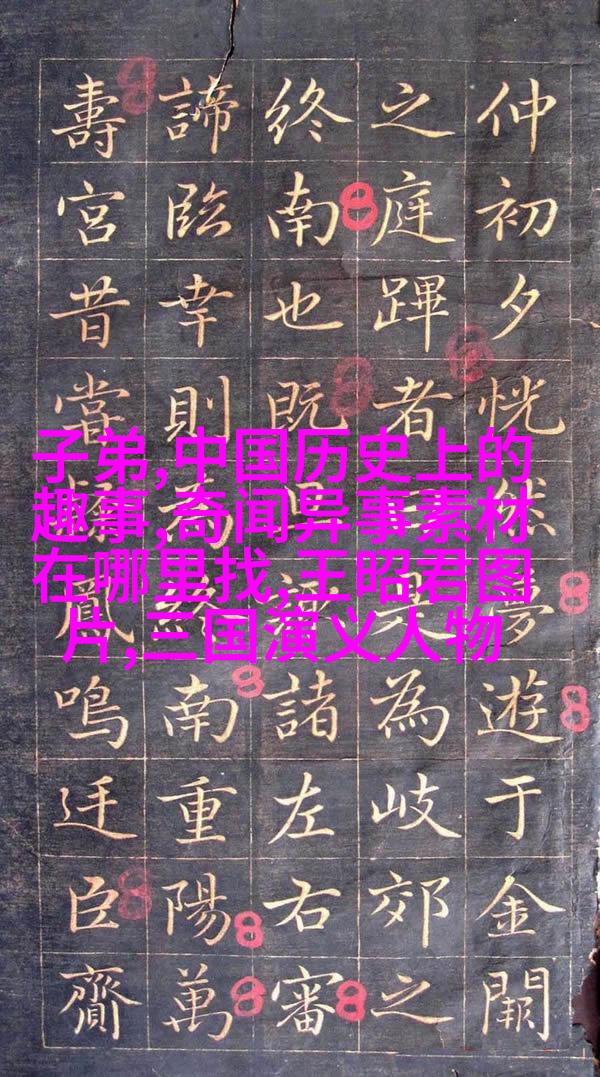 仲初夕恍然夢遊于金闕
之庭蹕者是為岐郊之
終南也既語諸左右審
諦臨幸則為終南重陽萬
壽宮昔當鳳鳴廷臣齎
子弟,中国历史上的
趣事,奇闻异事素材
在哪里找,王昭君图
片,三国演义人物